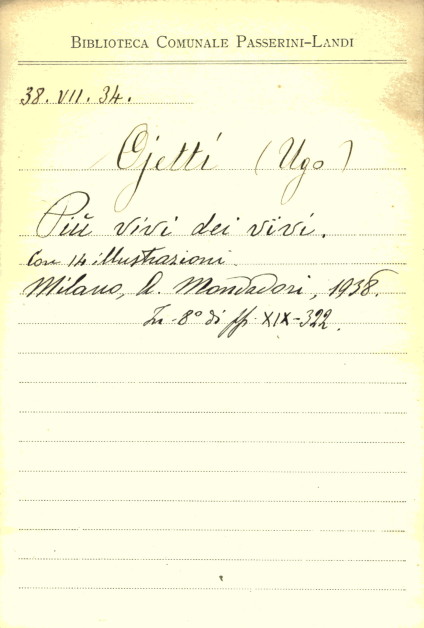 Biblioteca Comunale Passerini-Landi
38. VII. 34.
Ojetti (Ugo)
Più vivi dei vivi.
Con 14 illustrazioni.
Milano, A. Mondadori, 1938.
In-8° di pp. XIX-322.